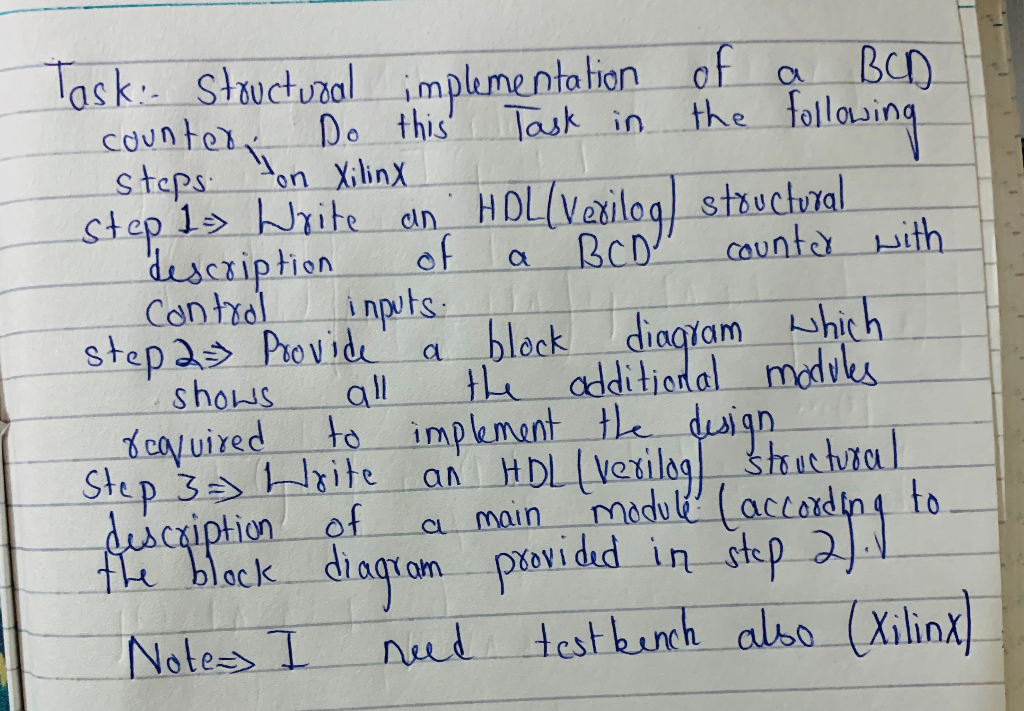 Task:- Structural implementation of a BCD
counter. Do this Task in the following
steps. on Xilinx
step 1⇒ Write an HDL(Verilog) structural
description of a BCD counter with
Control inputs.
step 2⇒ Provide a block diagram which
shows all the additional modules
required to implement the design
Step 3⇒ Write an HDL (Verilog) structural
description of a main module (according to
the block diagram provided in step 2).
Note⇒ I need testbench also (Xilinx)